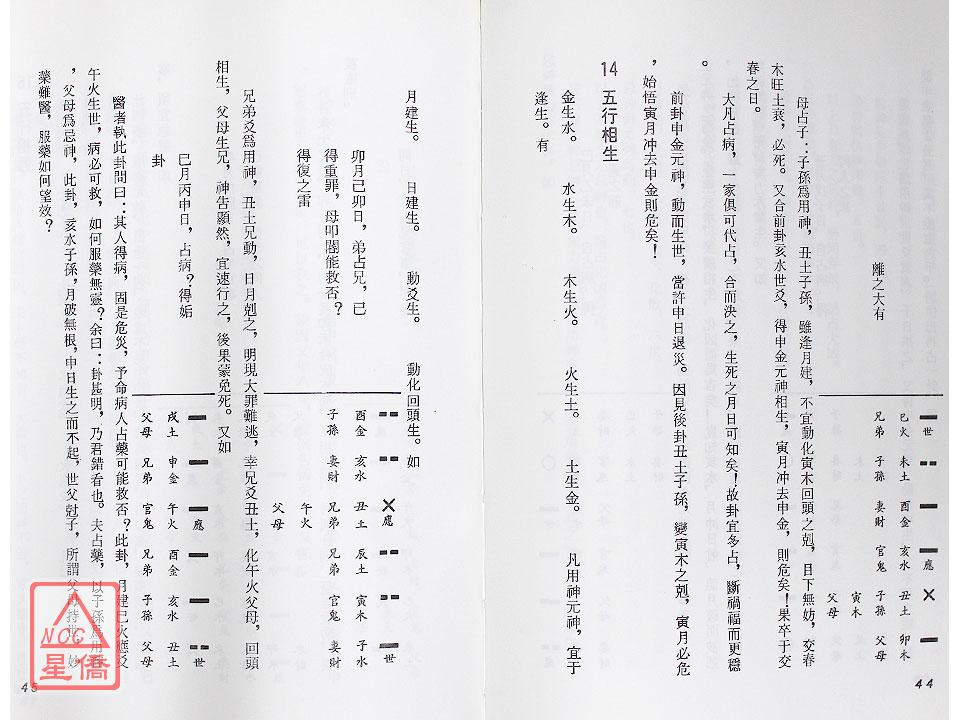 離之大有
世
應
巳火 未土 酉金 亥水 丑土 卯木
兄弟 子孫 妻財 官鬼 子孫 父母
寅木
父母
母占子：子孫爲用神，丑土子孫，雖逢月建，不宜動化寅木回頭之剋，目下無妨，交春
木旺土衰，必死。又合前卦亥水世爻，得申金元神相生，寅月冲去申金，則危矣！果卒于交
春之日。
大凡占病，一家俱可代占，合而決之，生死之月日可知矣！故卦宜多占，斷禍福而更穩
。
前卦申金元神，動而生世，當許申日退災。因見後卦丑土子孫，變寅木之剋，寅月必危
，始悟寅月冲去申金則危矣！
14 五行相生
金生水。 水生木。 木生火。 火生土。 土生金。 凡用神元神，宜于
逢生。有
44
月建生。 日建生。 動爻生。 動化回頭生。如
卯月己卯日，弟占兄，已
得重罪，母叩閽能救否？
得復之雷
應
世
酉金 亥水 丑土 辰土 寅木 子水
子孫 妻財 兄弟 兄弟 官鬼 妻財
午火
父母
兄弟爻爲用神，丑土兄動，日月剋之，明現大罪難逃，幸兄爻丑土，化午火父母，回頭
相生，父母生兄，神告顯然，宜速行之，後果蒙免死。又如
巳月丙申日，占病？得姤
卦
應
世
戌土 申金 午火 酉金 亥水 丑土
父母 兄弟 官鬼 兄弟 子孫 父母
醫者執此卦間曰：其人得病，固是危災，予命病人占藥可能救否？此卦，月建巳火應爻
午火生世，病必可救，如何服藥無靈？余曰：卦甚明，乃君錯看也。夫占藥，以子孫爲用神
，父母爲忌神，此卦，亥水子孫，月破無根，申日生之而不起，世父尅子，所謂父母持世，妙
藥難醫，服藥如何望效？
45
NCC
星僑